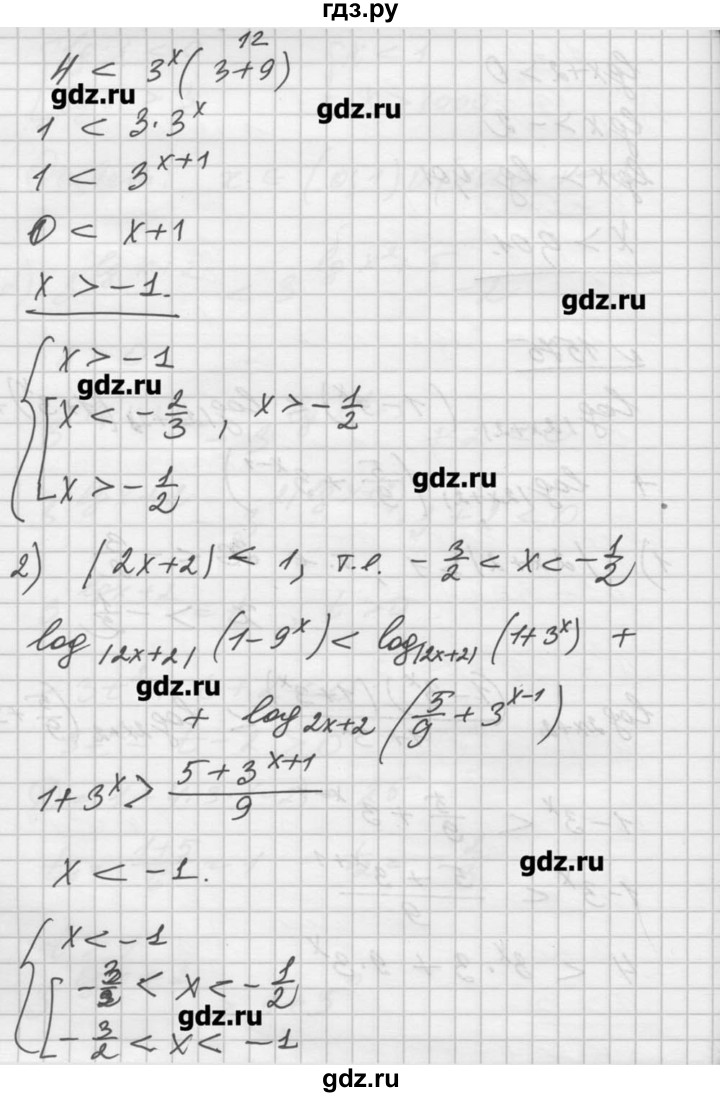 гдз.ру
12
4 < 3^x (3+9)
gdz.ru
gdz.ru
1 < 3·3^x
1 < 3^{x+1}
0 < x+1
x > -1.
gdz.ru
{ x > -1
gdz.ru
[ x < -2/3 , x > -1/2
x > -1/2
gdz.ru
2) |2x+2| < 1, т.е. -3/2 < x < -1/2
log_{|2x+2|} (1-9^x) < log_{|2x+2|} (1+3^x) +
gdz.ru
+ log_{2x+2} (5/9 + 3^{x-1})
1+3^x > (5+3^{x+1})/9
gdz.ru
x < -1.
{ x < -1
[ -3/2 < x < -1/2
gdz.ru
-3/2 < x < -1
gdz.ru